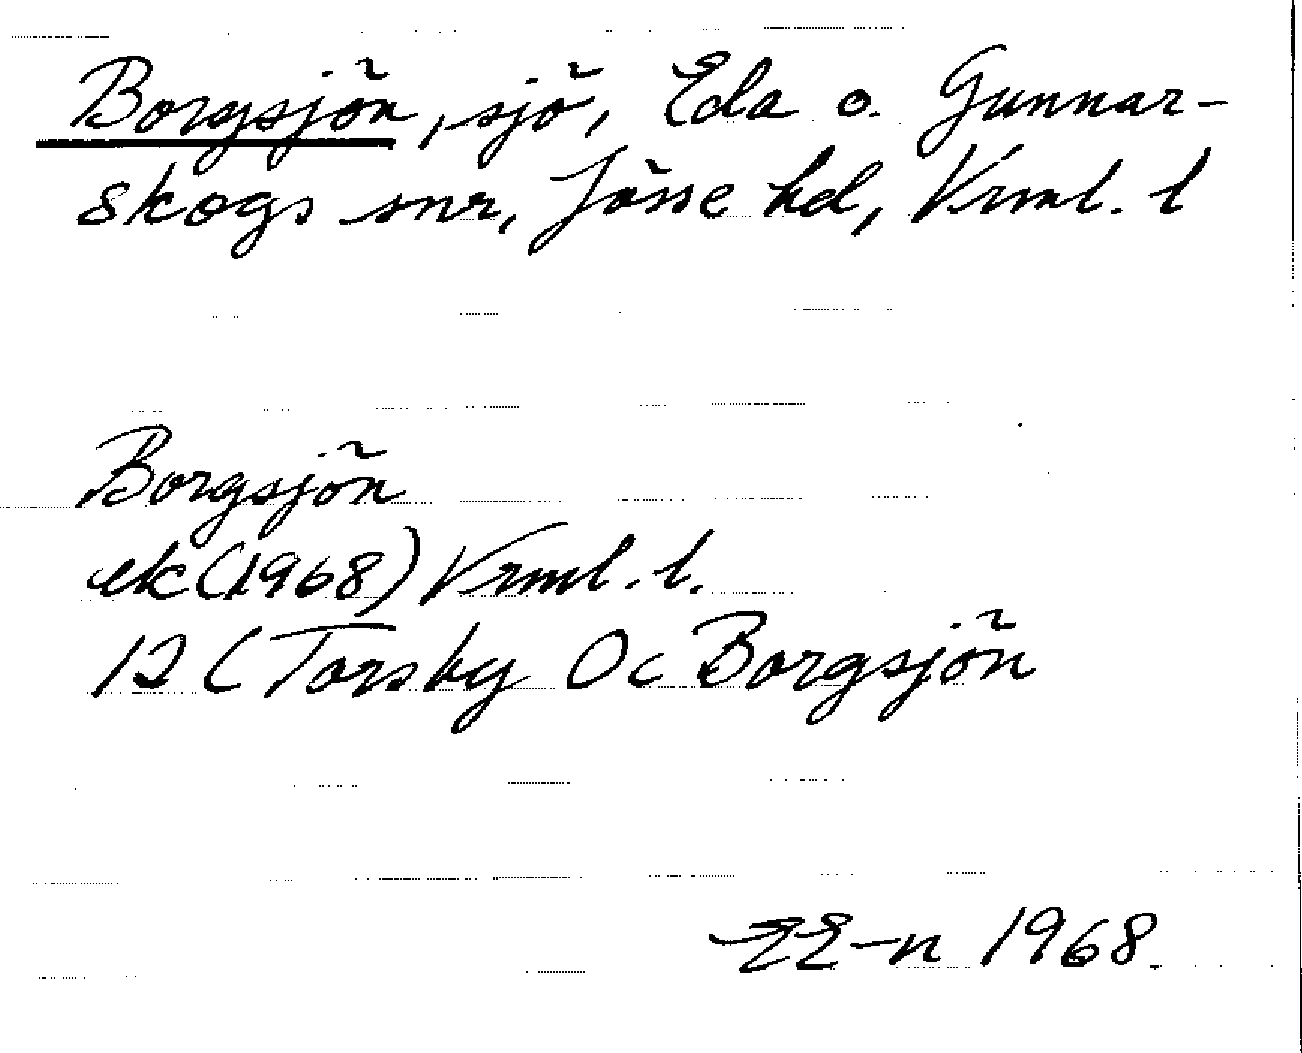 Borgsjön, sjö, Eda o. Gunnar-
skogs snr, Jösse hd, Vrml. l
Borgsjön
ek (1968) Vrml. l.
12 C Torsby Oc Borgsjön
EE-n 1968.